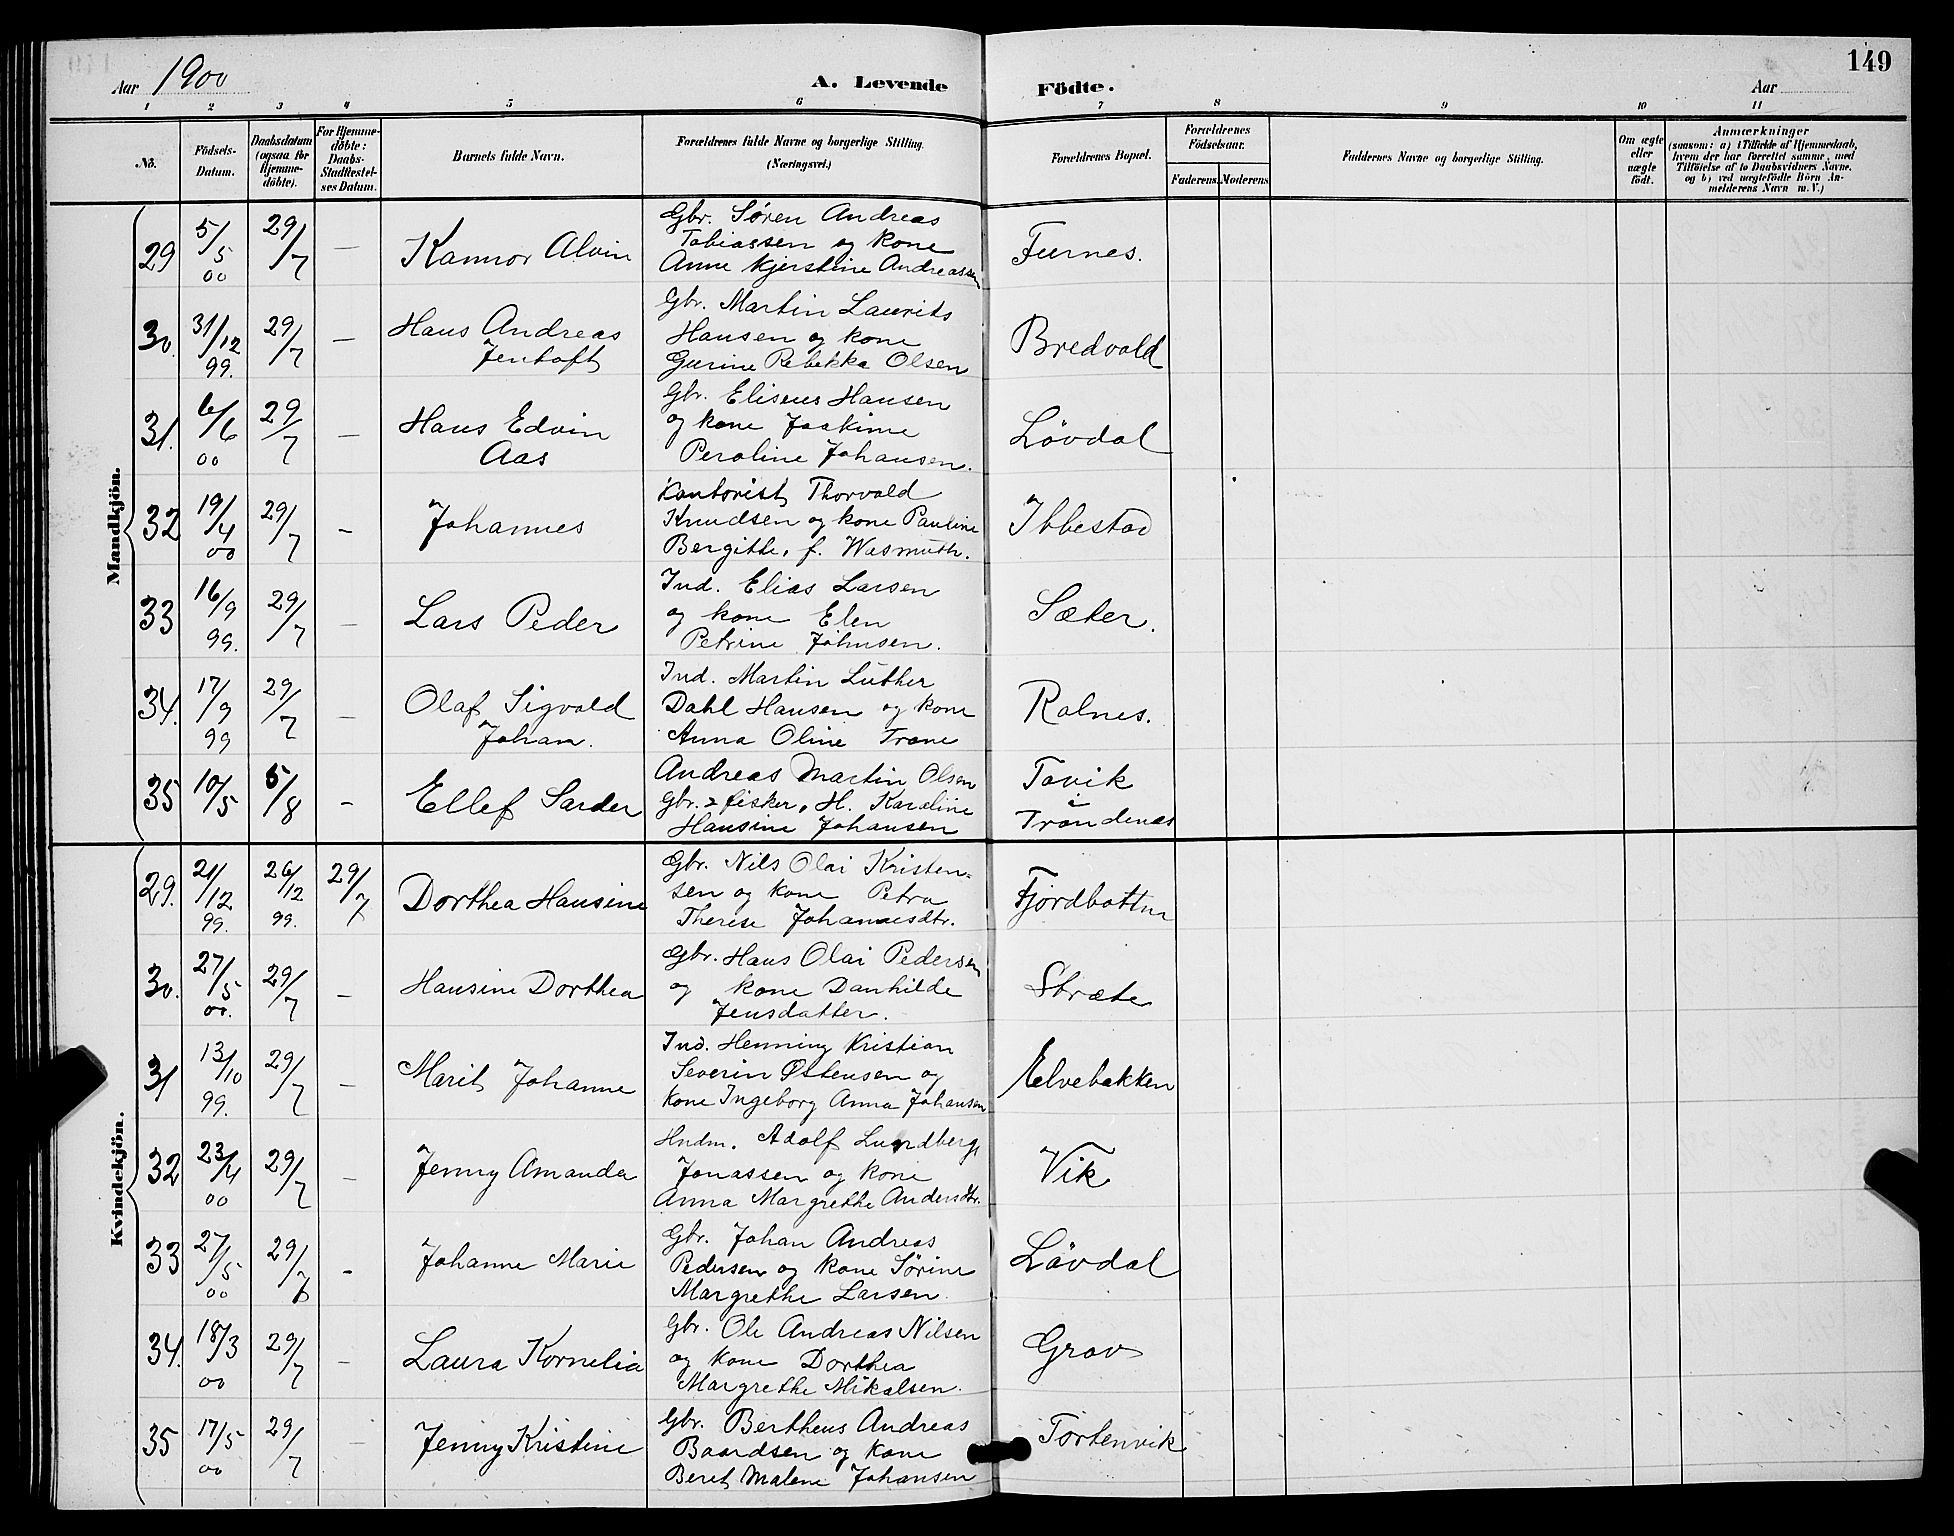 149
Aar 1900
A. Levende Födte.
Aar
1 2 3 4 5 6 7 8 9 10 11
No.
Födsels-
Datum.
Daabsdatum
(ogsaa for
Hjemme-
döbte).
For Hjemme-
döbte:
Daabs-
Stadfæstel-
ses Datum.
Barnets fulde Navn.
Forældrenes fulde Navne og borgerlige Stilling.
(Næringsvei.)
Forældrenes Bopæl.
Forældrenes
Födselsaar.
Faderens. Moderens.
Faddernes Navne og borgerlige Stilling.
Om ægte
eller
uægte
födt.
Anmærkninger
(saasom: a) i Tilfælde af Hjemmedaab,
hvem der har forrettet samme, med
Tilföielse af to Daabsvidners Navne,
og b) ved uægtefödte Börn An-
melderens Navn m. V.)
Mandkjön.
29 5/5 00 29/7 — Kannor Alvin
Gbr. Søren Andreas
Tobiassen og kone
Anne Kjerstine Andreassen
Furnes.
30. 31/12 99. 29/7 — Hans Andreas
Jentoft
Gbr. Martin Laurits
Hansen og kone
Gurine Rebekka Olsen
Bredvold
31. 6/6 00 29/7 — Hans Edvin
Aas
Gbr. Eliseus Hansen
og kone Joakime
Peroline Johansen.
Lövdal
32 19/4 00 29/7 — Johannes
Kontorist Thorvald
Knudsen og kone Pauline
Bergitte, f. Wasmuth.
Ibbestad
33 16/9 99. 29/7 — Lars Peder
Ind. Elias Larsen
og kone Elen
Petrine Johnsen.
Sæter.
34. 17/9 99 29/7 — Olaf Sigvald
Johan.
Ind. Martin Luther
Dahl Hansen og kone
Anna Oline Trane
Rolnes.
35 10/5 5/8 — Ellef Sarder
Andreas Martin Olsen
Gbr. & fisker, H. Karoline
Hansine Johansen
Tovik
i
Trondenes
Kvindekjön.
29. 21/12 99. 26/12 99. 29/7 Dorthea Hansine
Gbr. Nils Olai Kristen-
sen og kone Petra
Therese Johannesdtr.
Fjordbotten
30. 27/5 00. 29/7 — Hansine Dorthea
Gbr. Hans Olai Pedersen
og kone Danhilde
Jensdatter.
Stræte
31 13/10 99. 29/7 — Marit Johanne
Ind. Henning Kristian
Severin Østensen og
kone Ingeborg Anna Johansen
Elvebakken
32 23/4 00 29/7 — Jenny Amanda
Hndm. Adolf Lundberg
Jonassen og kone
Anna Margrethe Andersdtr.
Vik
33 27/5 00 29/7 — Johanne Marie
Gbr. Johan Andreas
Pedersen og kone Sørine
Margrethe Larsen.
Lövdal
34. 18/3 00 29/7 — Laura Kornelia
Gbr. Ole Andreas Nilsen
og kone Dorthea
Margrethe Mikalsen.
Grov
35 17/5 00 29/7 — Jenny Kristine
Gbr. Bertheus Andreas
Baardsen og kone
Beret Malene Johansen
Tortenvik